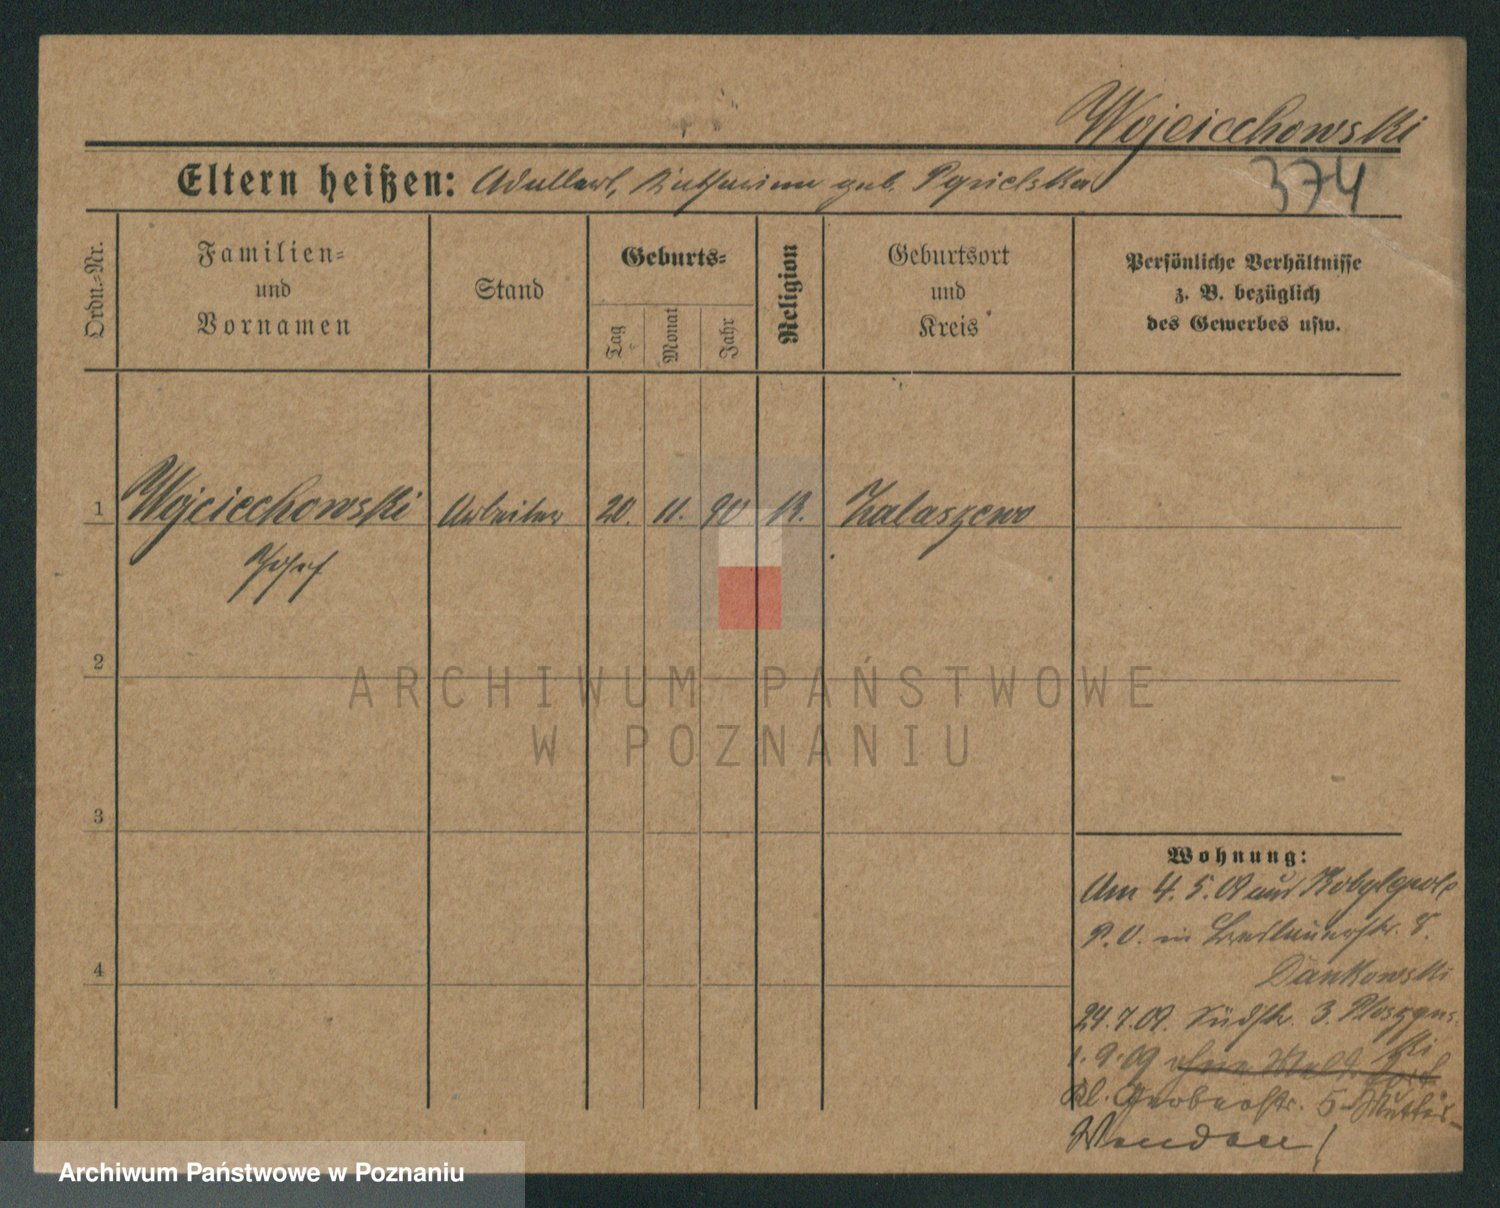 Wojciechowski
374
Eltern heißen: Adalbert, Katharina geb.
Ordn.-Nr.
Familien-
und
Vornamen
Stand
Geburts-
Tag
Monat
Jahr
Religion
Geburtsort
und
Kreis
Persönliche Verhältnisse
z. B. bezüglich
des Gewerbes usw.
1 Wojciechowski Arbeiter 20. 11. 90 K. Zalaszewo
Josef
2
3
4
Wohnung:
Am 4. 5. 09 aus Kobylepole
P. O. in 8.
Dankowski
24.7.09. Südstr. 3.
1. 9. 09 ohne
Kl. Gerberstr. 5
Wenden!
ARCHIWUM PAŃSTWOWE
W POZNANIU
Archiwum Państwowe w Poznaniu